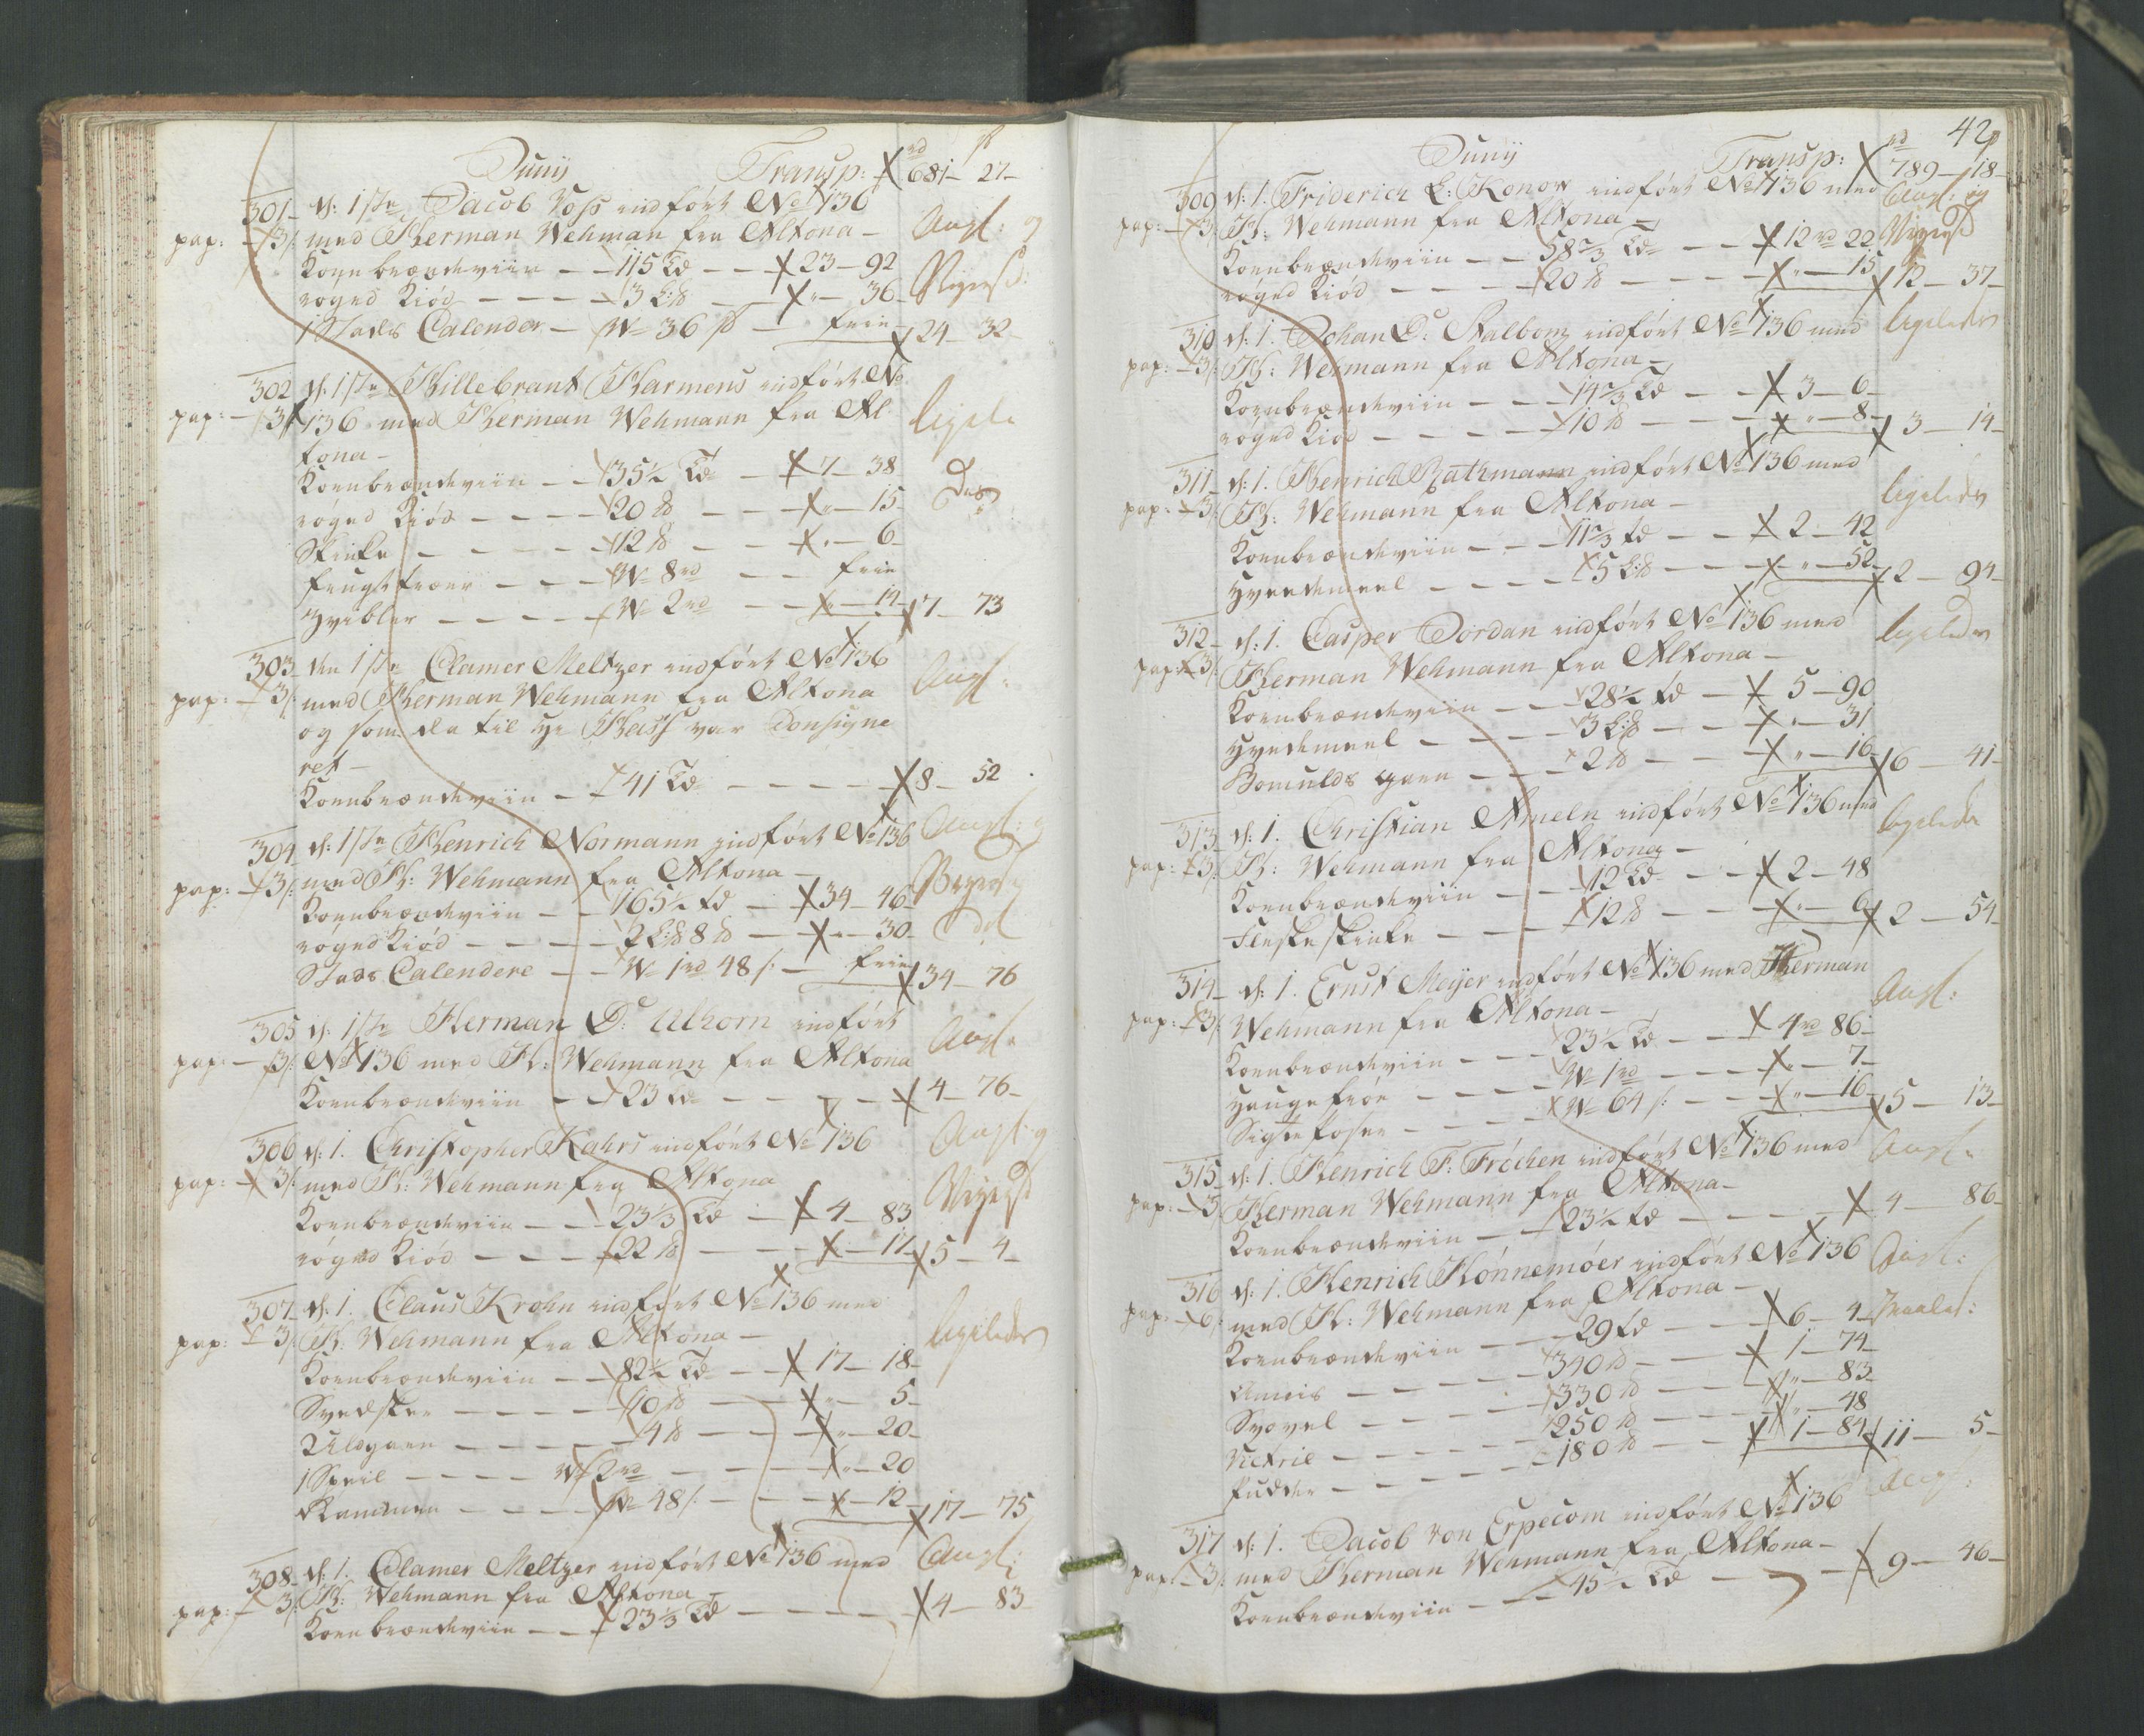 Junij Transp: 681 - 27 -
301 - d: 1ste Jacob Voss indfört No 136
pap: - 3/: med Herman Wehman fra Altona - Angl: og
Kornbrændeviin - - 115 Td - - 23 - 92
röged Kiöd - - - - 3 L:℔ - - " - 36 -
1 Stads Calender - W 36 ß - frie 24 - 32
302 d: 1ste Hillebrant Harmens indfört No
pap: - 3/ 136 med Herman Wehmann fra Al
tona -
Kornbrændeviin - - 35½ Td - 7 - 38
röged Kiöd - - - - 20 ℔ - - " - 15 -
Skinke - - - - 12 ℔ - - " - 6 -
frugttræer - - - W 8 rd - - frie
Hvibler - - - - W 2 rd - - " - 14 - 7 - 73
303 - den 1ste Clamer Meltzer indfört No 136 Angl:
pap: - 3/: med Herman Wehmann fra Altona
og som da til Hr Hass var Consigne
ret -
Kornbrændeviin - - 41 Td - - - - 8 - 52
304 - d: 1ste Henrich Normann indfört No 136 Angl: og
pap: - 3/: med H: Wehmann fra Altona -
Kornbrændeviin - - 165½ td - 34 - 46 -
röged Kiöd - - - - 2 L:℔ 8 ℔ - " - 30 -
Stads Calendere - - W 1 rd 48 /: - frie 34 - 76
305 d: 1ste Herman D: Ulhorn indfört Angl:
pap: - 3/: No 136 med H: Wehmann fra Altona
Kornbrændeviin - - 23 Td - - - 4 - 76 -
306 d: 1. Christopher Kahrs indfört No 136 Angl: og
pap: - 3/: med H: Wehmann fra Altona
Kornbrændeviin - - 23⅓ Td - 4 - 83
röged Kiöd - - - 22 ℔ - - - " - 17 - 5 - 4 -
307 - d: 1. Claus Krohn indfört No 136 med
pap: - 3/: H: Wehmann fra Altona - ligeledes
Kornbrændeviin - - 82½ Td - - 17 - 18 -
Svedsker - - - - 10 ℔ - - - " - 5 -
Uldgarn - - - - 4 ℔ - - - " - 20 -
1 Speil - - - - W 2 rd - - - " - 20
Kammer - - - W 48 /: - - - " - 12 - 17 - 75
308 - d: 1. Clamer Meltzer indfört No 136 med Angl:
pap: - 3/: H: Wehmann fra Altona -
Kornbrændeviin - - 23⅓ Td - - - - 4 - 83
42
Junij Transp: 789 - 18 -
309 d: 1. Friderich L: Konow indfört No 136 med Angl: og
pap: - 3/: H: Wehmann fra Altona -
Kornbrændeviin - - 58⅔ Td - - 12 rd 22
röged Kiöd - - - - 20 ℔ - - - " - 15 12 - 37 -
310 d: 1. Johan D: Stalbom indfört No 136 med ligeledes
pap: - 3/: H: Wehmann fra Altona -
Kornbrændeviin - - - 14⅔ Td - - 3 - 6 -
röged Kiöd - - - - 10 ℔ - - - " - 8 - 3 - 14 -
311 - d: 1. Henrich Rathmann indfört No 136 med
pap: - 3/: H: Wehmann fra Altona - ligeledes
Kornbrændeviin - - - 11⅔ td - - 2 - 42
Hvedemeel - - - - 5 L:℔ - - - " - 52 2 - 94 -
312 - d: 1. Casper Jordan indfört No 136 med ligeledes
pap: - 3/: Herman Wehmann fra Altona -
Kornbrændeviin - - 28½ td - 5 - 90
Hvedemeel - - - - 3 L:℔ - - " - 31
Bomulds garn - - - 2 ℔ - - " - 16 - 6 - 41 -
313 - d: 1. Christian Ameln indfört No 136 med ligeledes
pap: - 3/: H: Wehmann fra Altona -
Kornbrændeviin - - 12 Td - - 2 - 48
Fleskeskinke - - - 12 ℔ - - - " - 6 2 - 54
314 - d: 1. Ernst Meijer indfört No 136 med Herman
pap: - 3/: Wehmann fra Altona - Angl:
Kornbrændeviin - - - 23½ Td - - 4 rd 86 -
Haugefröe - - - - W 1 rd - - - " - 7 -
Sigteposer - - - - W 64 /: - - - " - 16 - 5 - 13 -
315 - d: 1. Henrich F: Fröchen indfört No 136 med Angl:
pap: - 3/: Herman Wehmann fra Altona -
Kornbrændeviin - - 23½ td - - - - 4 - 86 -
316 - d: 1. Henrich Hönnemöer indfört No 136 Angl:
pap: - 6/: med H: Wehmann fra Altona -
Kornbrændeviin - - - 29 td - - - 6 - 4 -
Anis - - - - - 340 ℔ - - - 1 - 74 -
Svovel - - - - 330 ℔ - - - " - 83 -
Victril - - - - 250 ℔ - - - " - 48
Pudder - - - - - 180 ℔ - - 1 - 84 11 - 5 -
317 d: 1. Jacob von Erpecom indfört No 136 Angl:
pap: - 3/: med Herman Wehmann fra Altona -
Kornbrændeviin - - - 45½ Td - - - 9 - 46 -